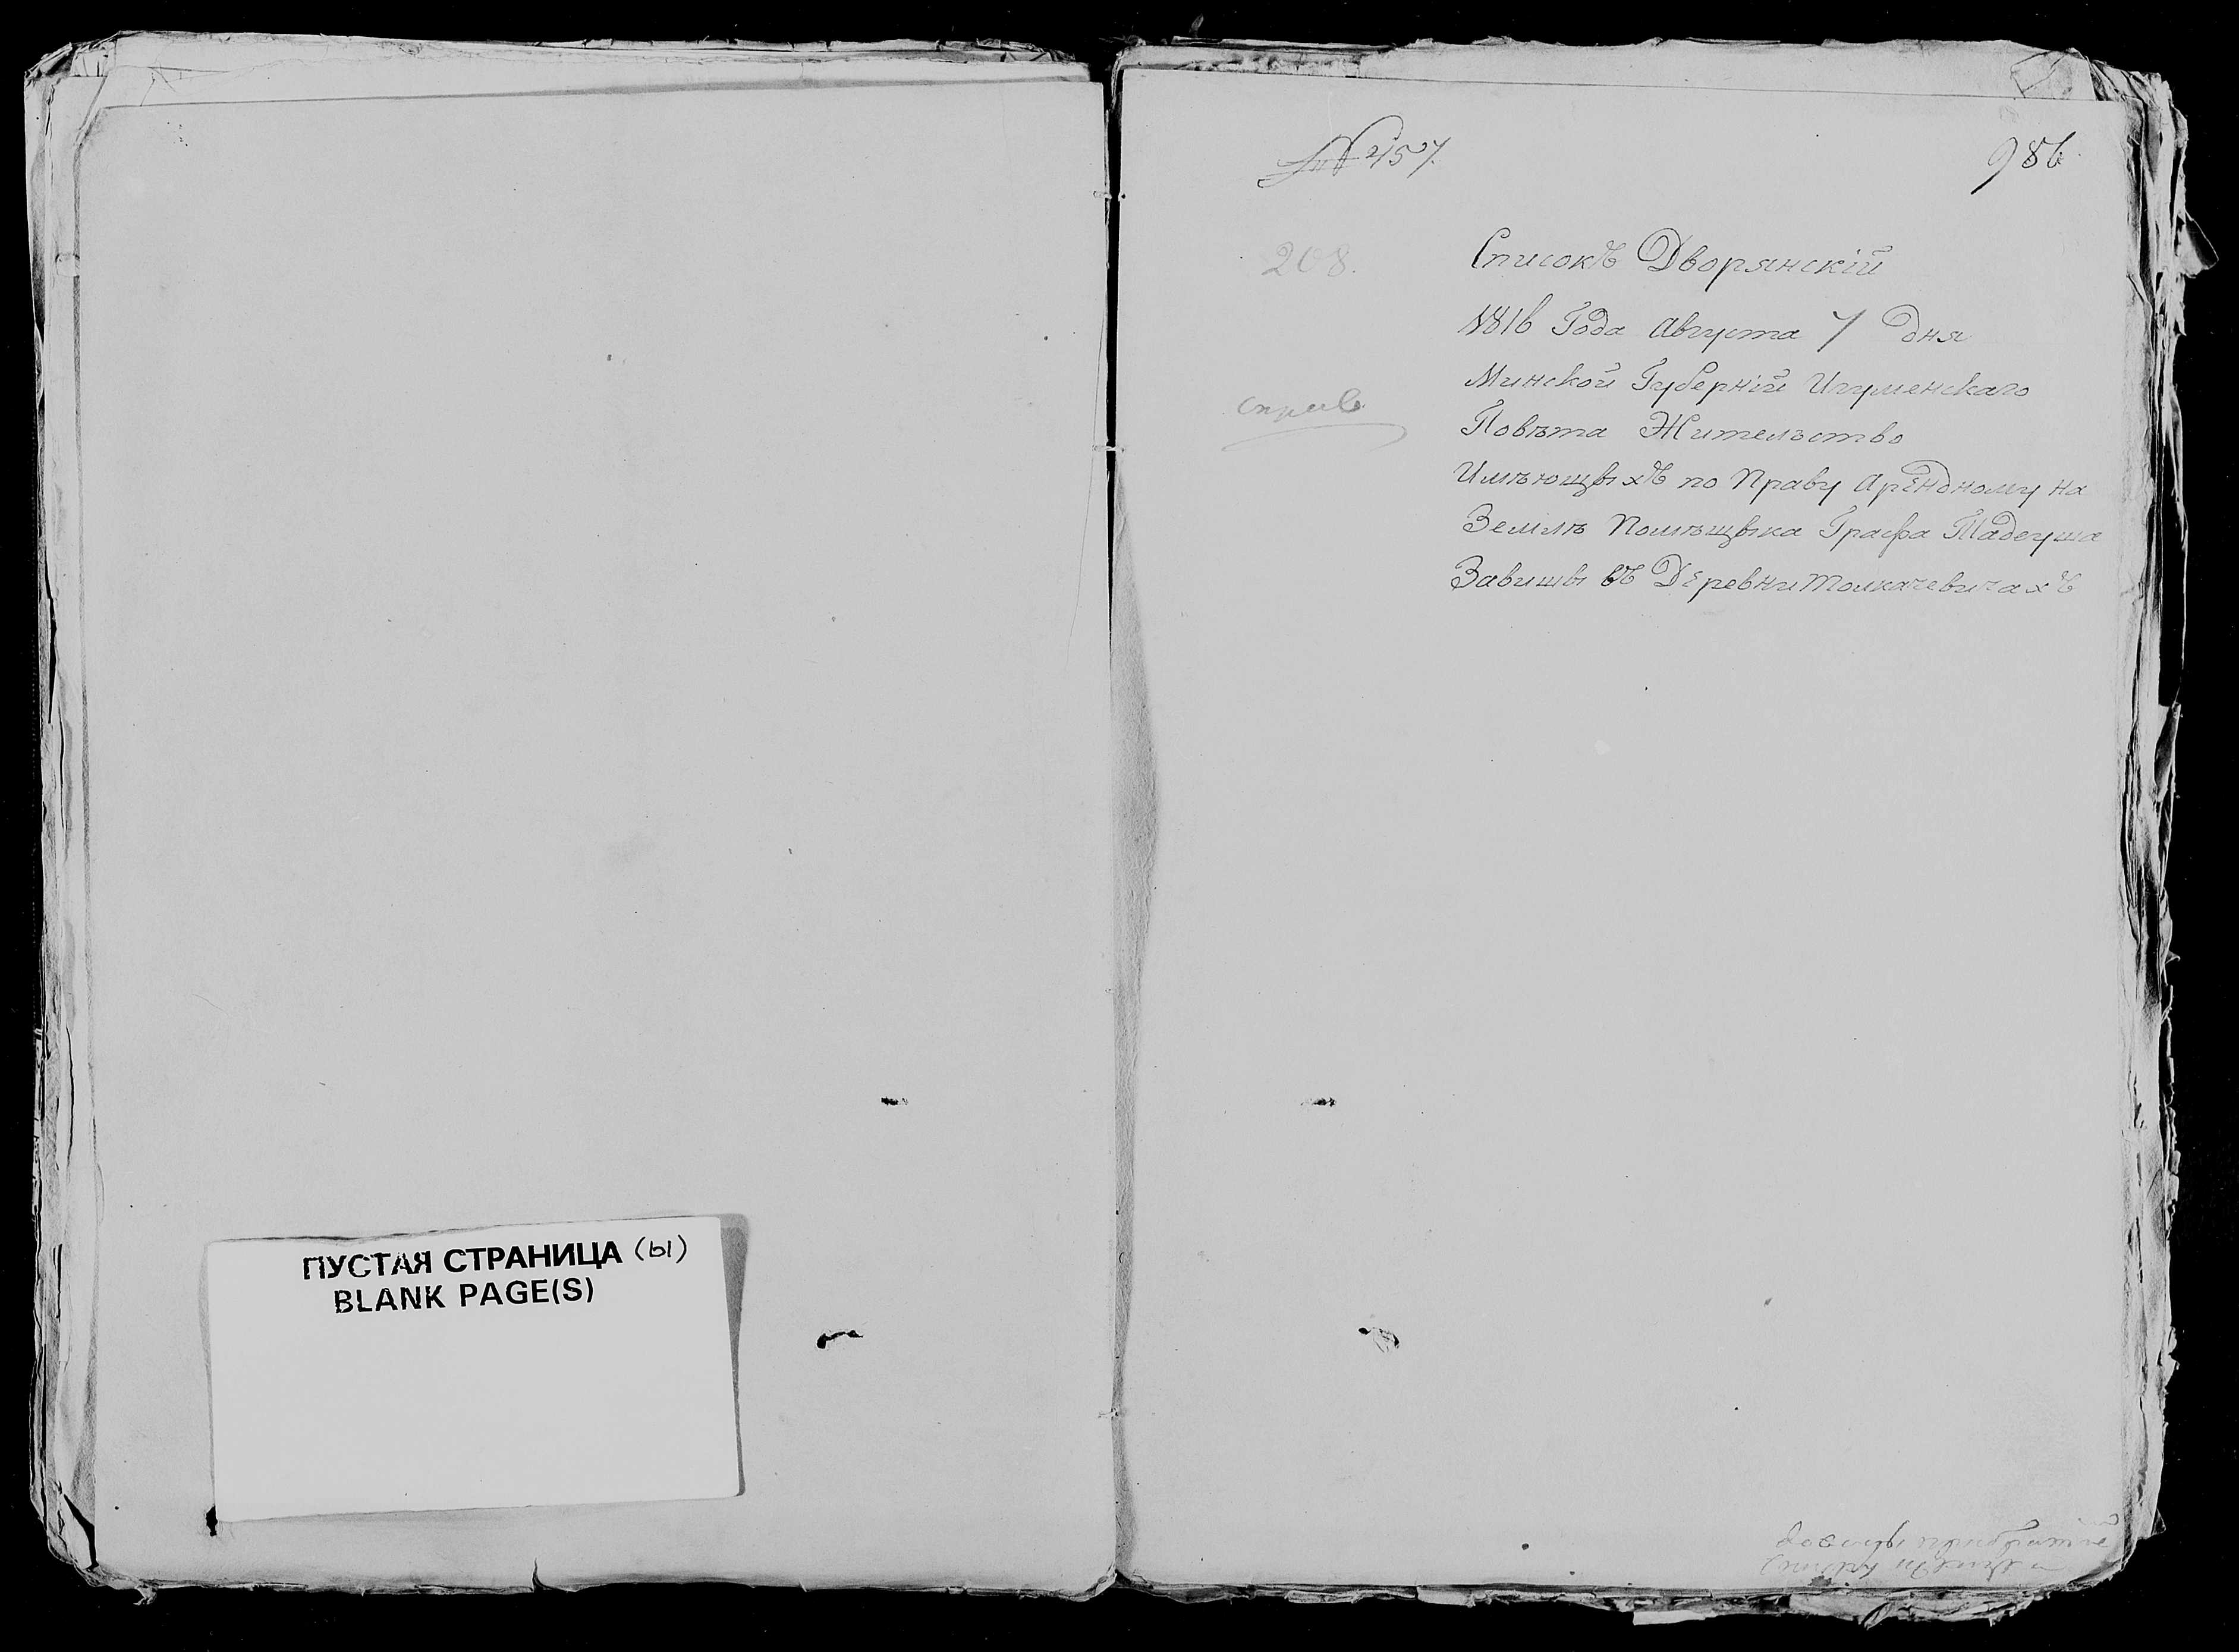 ПУСТАЯ СТРАНИЦА (ы)
BLANK PAGE(S)
№ 457.
986
208.
Списокъ Дворянскій
1816 Года Августа 7 дня
Минской Губерніи Игуменскаго
справ
Повѣта Жительство
Имѣющыхъ по Праву Арендному на
Землѣ Помѣщыка Графа Тадеуша
Завишы въ Деревни Толкачевичахъ